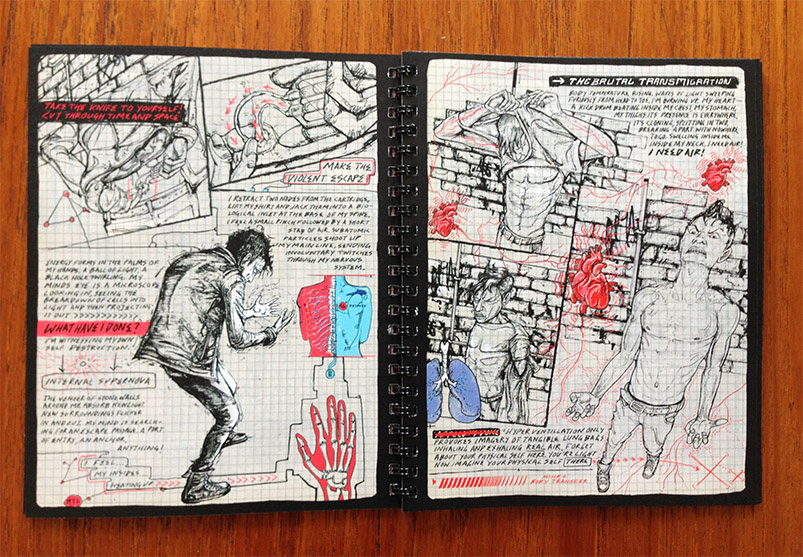 TAKE THE KNIFE TO YOURSELF!
CUT THROUGH TIME AND SPACE
MAKE THE
VIOLENT ESCAPE
I RETRACT TWO NODES FROM THE CARTRIDGE,
LIFT MY SHIRT AND JACK THEM INTO A BIO-
LOGICAL INLET AT THE BASE OF MY SPINE.
I FEEL A SMALL PINCH FOLLOWED BY A SHORT
STAB OF AIR. SUBATOMIC
PARTICLES SHOOT UP
MY MAIN LINE, SENDING
INVOLUNTARY TWITCHES
THROUGH MY NERVOUS
SYSTEM.
ENERGY FORMS IN THE PALMS OF
MY HANDS. A BALL OF LIGHT, A
BLACK HOLE TWIRLING. MY
MINDS EYE IS A MICROSCOPE
LOOKING IN, SEEING THE
BREAKDOWN OF CELLS INTO
LIGHT AND THEN PROJECTING
IT OUT
WHAT HAVE I DONE?
I'M WITNESSING MY OWN
SELF DESTRUCTION.
INTERNAL SUPERNOVA
THE STONE WALLS
AROUND ME ABSORB THE LIGHT
NEW SURROUNDINGS FLICKER
IN AND OUT. MY MIND IS SEARCH-
ING FOR AN ESCAPE PASSAGE. A PORT
OF ENTRY, AN ANCHOR,
ANYTHING!
I FEEL...
MY INSIDES
HEATING UP
THE BRUTAL TRANSMIGRATION
BODY TEMPERATURE RISING, WAVES OF LIGHT SWELLING
FURIOUSLY FROM HEAD TO TOE. I'M BURNING UP. MY HEART—
A KICK DRUM BEATING INSIDE MY CHEST, MY STOMACH,
MY THIGHS. ITS PRESENCE IS EVERYWHERE.
IT'S CLONING, SPLITTING IN TWO,
BREAKING APART WITH NOWHERE
TO GO. SWELLING INSIDE ME
INSIDE MY NECK. I NEED AIR!
I NEED AIR!
HYPERVENTILATION ONLY
PROVOKES IMAGERY OF TANGIBLE LUNG BAGS
INHALING AND EXHALING REAL AIR. FORGET
ABOUT YOUR PHYSICAL SELF HERE. YOU'RE LIGHT
NOW. IMAGINE YOUR PHYSICAL SELF THERE
MIND +
BODY TRANSFER